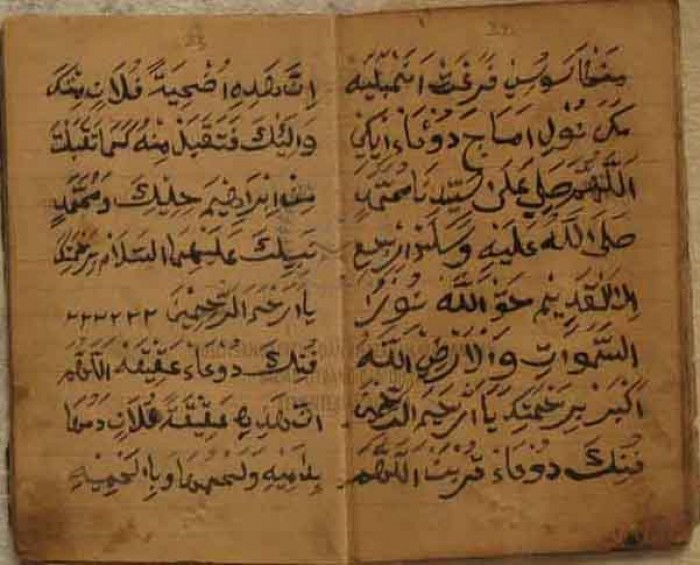 مك نولي اماچ دوعاء ايكي
اللهم صلي على سيدنا محمد
صلى الله عليه وسلم ارجع
القديم حق الله نور
السموات والارض الله
اكبر برحمتك يا ارحم الرحمين
فنيك دوعاء قربن اللهم
ان هذه اضحية فلان منك
واليك فتقبل منه كما تقبلت
من ابراهيم حليك ومحمد
نبيك عليهما السلام برحمتك
يا ارحم الرحمين
فنيك دوعاء عقيقه اللهم
ان هذه عقيقة فلان دمها
بدميه ولحمها بالحميه